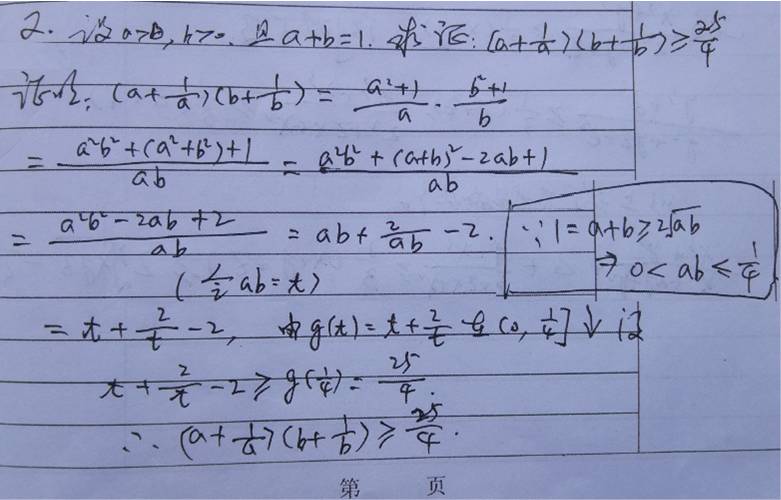 2. 设a>0, b>0. 且a+b=1. 求证: (a+1/a)(b+1/b)≥25/4
证明: (a+1/a)(b+1/b) = (a²+1)/a · (b²+1)/b
= (a²b²+(a²+b²)+1)/(ab) = (a²b²+(a+b)²-2ab+1)/(ab)
= (a²b²-2ab+2)/(ab) = ab+2/(ab)-2.
∵1=a+b≥2√ab
→ 0<ab≤1/4
(令ab=t)
= t+2/t-2, 由g(t)=t+2/t在(0, 1/4]↓
t+2/t-2≥g(1/4)=25/4.
∴ (a+1/a)(b+1/b)≥25/4.
第 页